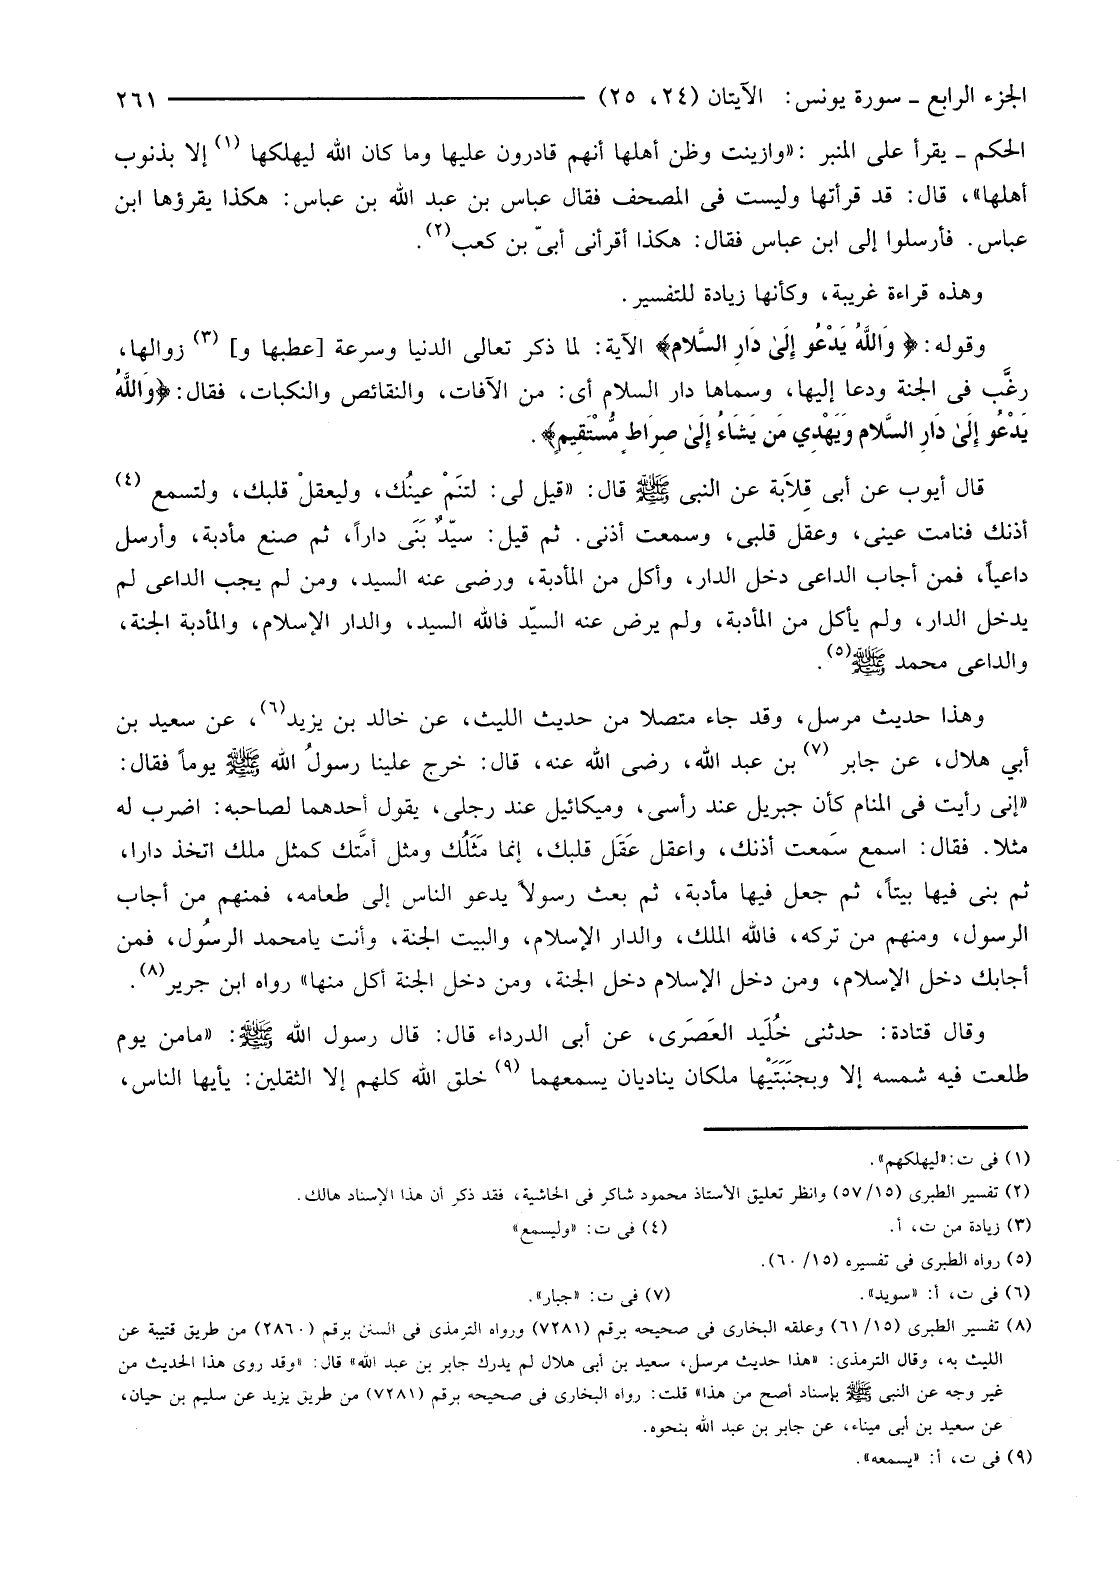 الجزء الرابع ـ سورة يونس: الآيتان (٢٤، ٢٥) ٢٦١
الحكم ـ يقرأ على المنبر : «وازينت وظن أهلها أنهم قادرون عليها وما كان الله ليهلكها (١) إلا بذنوب
أهلها»، قال: قد قرأتها وليست فى المصحف فقال عباس بن عبد الله بن عباس: هكذا يقرؤها ابن
عباس. فأرسلوا إلى ابن عباس فقال: هكذا أقرأنى أبىّ بن كعب(٢).
وهذه قراءة غريبة، وكأنها زيادة للتفسير.
وقوله: ﴿ وَاللَّهُ يَدْعُو إِلَىٰ دَارِ السَّلام﴾ الآية: لما ذكر تعالى الدنيا وسرعة [عطبها و] (٣) زوالها،
رغَّب فى الجنة ودعا إليها، وسماها دار السلام أى: من الآفات، والنقائص والنكبات، فقال: ﴿وَاللَّهُ
يَدْعُو إِلَىٰ دَارِ السَّلام وَيَهْدِي مَن يَشَاءُ إِلَىٰ صِرَاطٍ مُّسْتَقِيمٍ﴾.
قال أيوب عن أبى قِلاَبة عن النبى ﷺ قال: «قيل لى: لتنَمْ عينُك، وليعقلْ قلبك، ولتسمع (٤)
أذنك فنامت عينى، وعقل قلبى، وسمعت أذنى. ثم قيل: سيّدٌ بَنَى داراً، ثم صنع مأدبة، وأرسل
داعياً، فمن أجاب الداعى دخل الدار، وأكل من المأدبة، ورضى عنه السيد، ومن لم يجب الداعى لم
يدخل الدار، ولم يأكل من المأدبة، ولم يرض عنه السيّد فالله السيد، والدار الإسلام، والمأدبة الجنة،
والداعى محمد ﷺ(٥).
وهذا حديث مرسل، وقد جاء متصلا من حديث الليث، عن خالد بن يزيد(٦)، عن سعيد بن
أبي هلال، عن جابر (٧) بن عبد الله، رضى الله عنه، قال: خرج علينا رسولُ الله ﷺ يوماً فقال:
«إنى رأيت فى المنام كأن جبريل عند رأسى، وميكائيل عند رجلى، يقول أحدهما لصاحبه: اضرب له
مثلا. فقال: اسمع سَمعت أذنك، واعقل عَقَل قلبك، إنما مَثَلُك ومثل أمتَّك كمثل ملك اتخذ دارا،
ثم بنى فيها بيتاً، ثم جعل فيها مأدبة، ثم بعث رسولاً يدعو الناس إلى طعامه، فمنهم من أجاب
الرسول، ومنهم من تركه، فالله الملك، والدار الإسلام، والبيت الجنة، وأنت يامحمد الرسُول، فمن
أجابك دخل الإسلام، ومن دخل الإسلام دخل الجنة، ومن دخل الجنة أكل منها» رواه ابن جرير(٨).
وقال قتادة: حدثنى خُلَيد العَصَرى، عن أبى الدرداء قال: قال رسول الله ﷺ: «مامن يوم
طلعت فيه شمسه إلا وبجنَبَتَيْها ملكان يناديان يسمعهما (٩) خلق الله كلهم إلا الثقلين: يأيها الناس،
(١) فى ت: «ليهلكهم».
(٢) تفسير الطبرى (١٥/ ٥٧) وانظر تعليق الأستاذ محمود شاكر فى الحاشية، فقد ذكر أن هذا الإسناد هالك.
(٣) زيادة من ت، أ. (٤) فى ت: «وليسمع»
(٥) رواه الطبرى فى تفسيره (١٥/ ٦٠).
(٦) فى ت، أ: «سويد». (٧) فى ت: «جبار».
(٨) تفسير الطبرى (١٥/ ٦١) وعلقه البخارى فى صحيحه برقم (٧٢٨١) ورواه الترمذى فى السنن برقم (٢٨٦٠) من طريق قتيبة عن
الليث به، وقال الترمذى: «هذا حديث مرسل، سعيد بن أبى هلال لم يدرك جابر بن عبد الله» قال: «وقد روى هذا الحديث من
غير وجه عن النبى ﷺ بإسناد أصح من هذا» قلت: رواه البخارى فى صحيحه برقم (٧٢٨١) من طريق يزيد عن سليم بن حيان،
عن سعيد بن أبى ميناء، عن جابر بن عبد الله بنحوه.
(٩) فى ت، أ: «يسمعه».